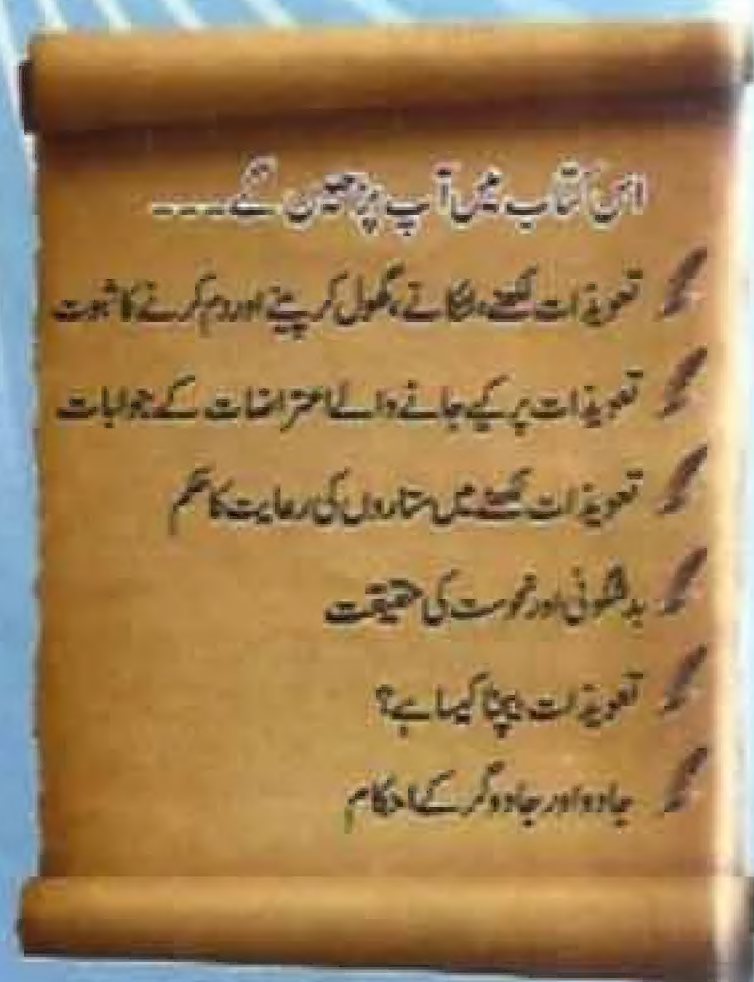 اس کتاب میں آپ پڑھیں گے۔۔۔۔
تعویذات لکھنے، لٹکانے، گھول کر پینے اور دم کرنے کا ثبوت
تعویذات پر کیے جانے والے اعتراضات کے جوابات
تعویذات لکھنے میں ستاروں کی رعایت کا حکم
بدشگونی اور نحوست کی حقیقت
تعویذات بیچنا کیسا ہے؟
جادو اور جادوگر کے احکام